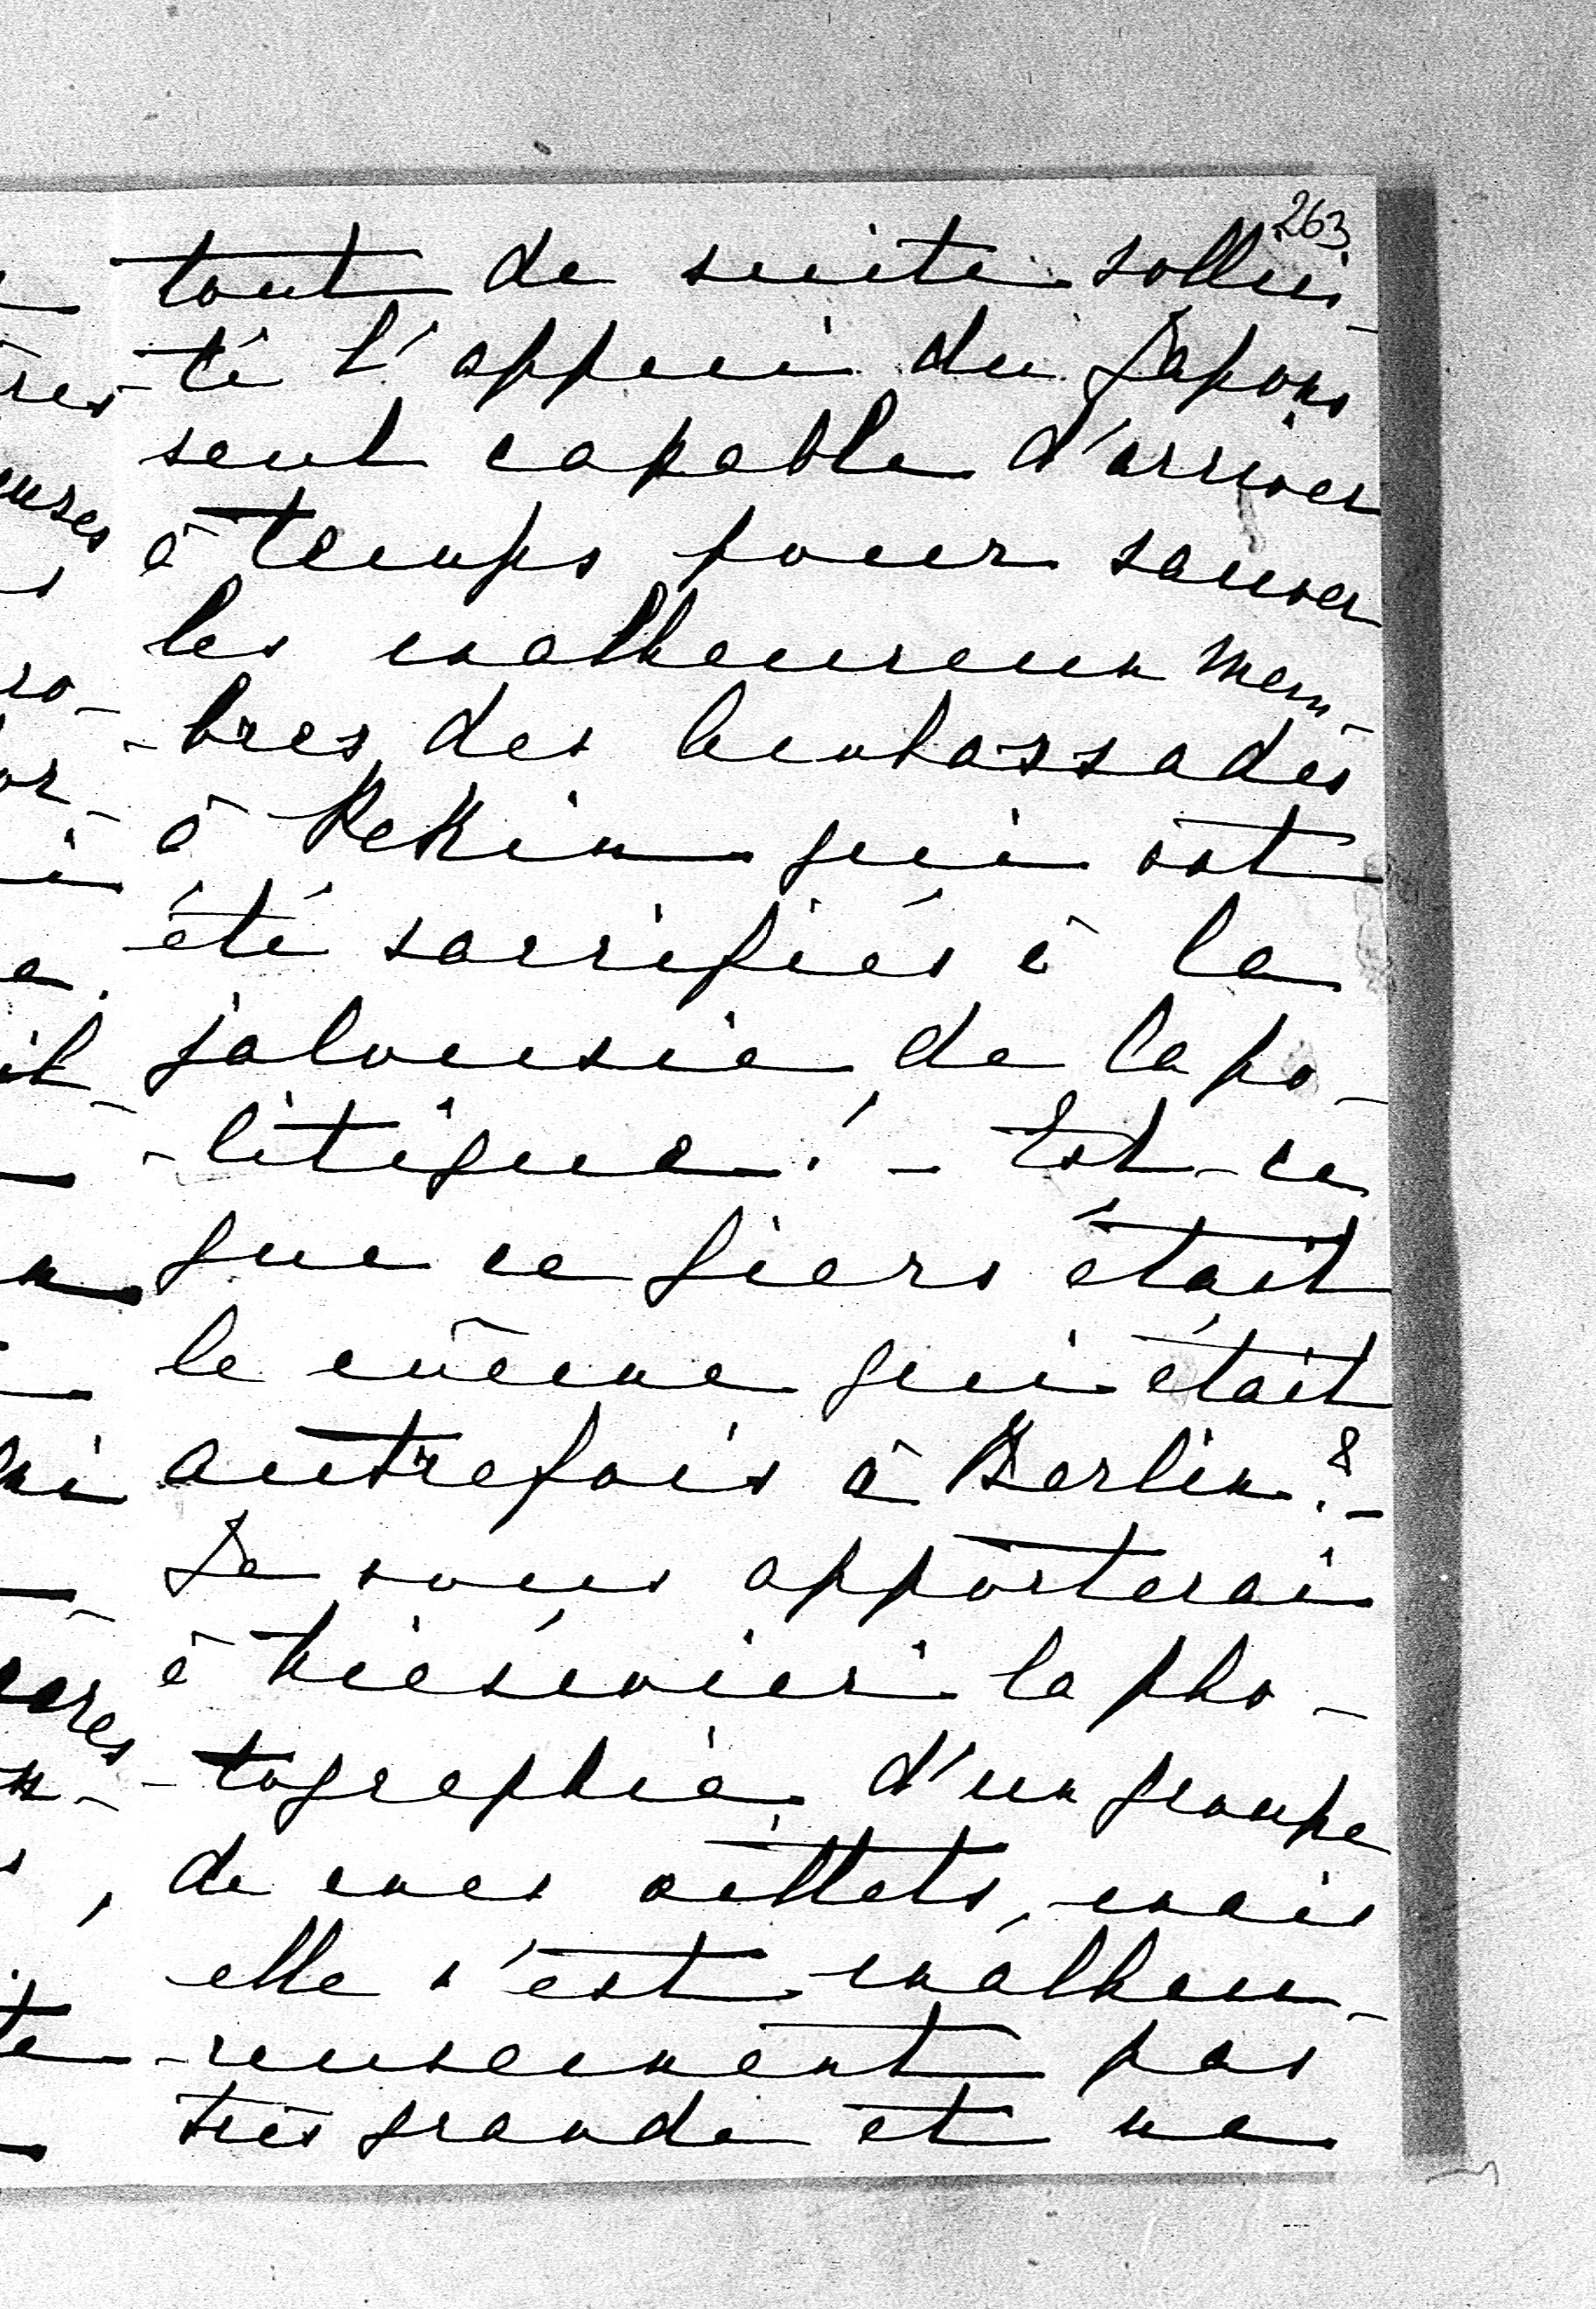 263
tout de suite sollici-
-té l'appui du Japon
seul capable d'arriver
à temps pour sauver
les malheureux mem-
-bres des Ambassades
à Pekin qui ont
été sacrifiés à la
jalousie de la po-
-litique! - Est-ce
que ce Giers était
le même qui était
autrefois à Berlin? -
Je vous apporterai
à la pho-
-tographie d'un groupe
de mes œillets, mais
elle n'est malheu-
-reusement pas
très grande et ne